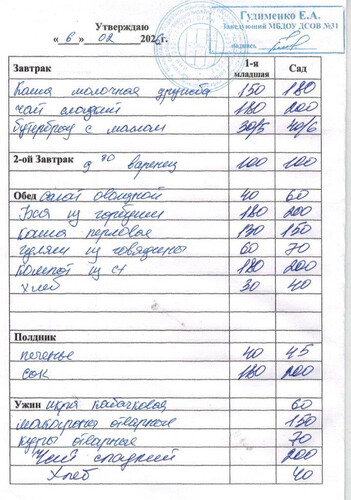 Гудименко Е.А.
Заведующий МБДОУ ДСОВ №31
подпись
Утверждаю
« 6 » 02 202
Завтрак 1-я младшая Сад
Каша молочная дружба 150 180
чай сладкий 180 200
бутерброд с маслом 30/5 40/6
2-ой Завтрак варенец 100 100
Обед салат овощной 40 60
Уха из горбуши 180 200
каша перловая 130 150
гуляш из говядины 60 70
компот из с/ф 180 200
хлеб 30 40
Полдник
печенье 40 45
сок 180 200
Ужин икра кабачковая 60
макароны отварные 150
куры отварные 70
Чай сладкий 200
Хлеб 40